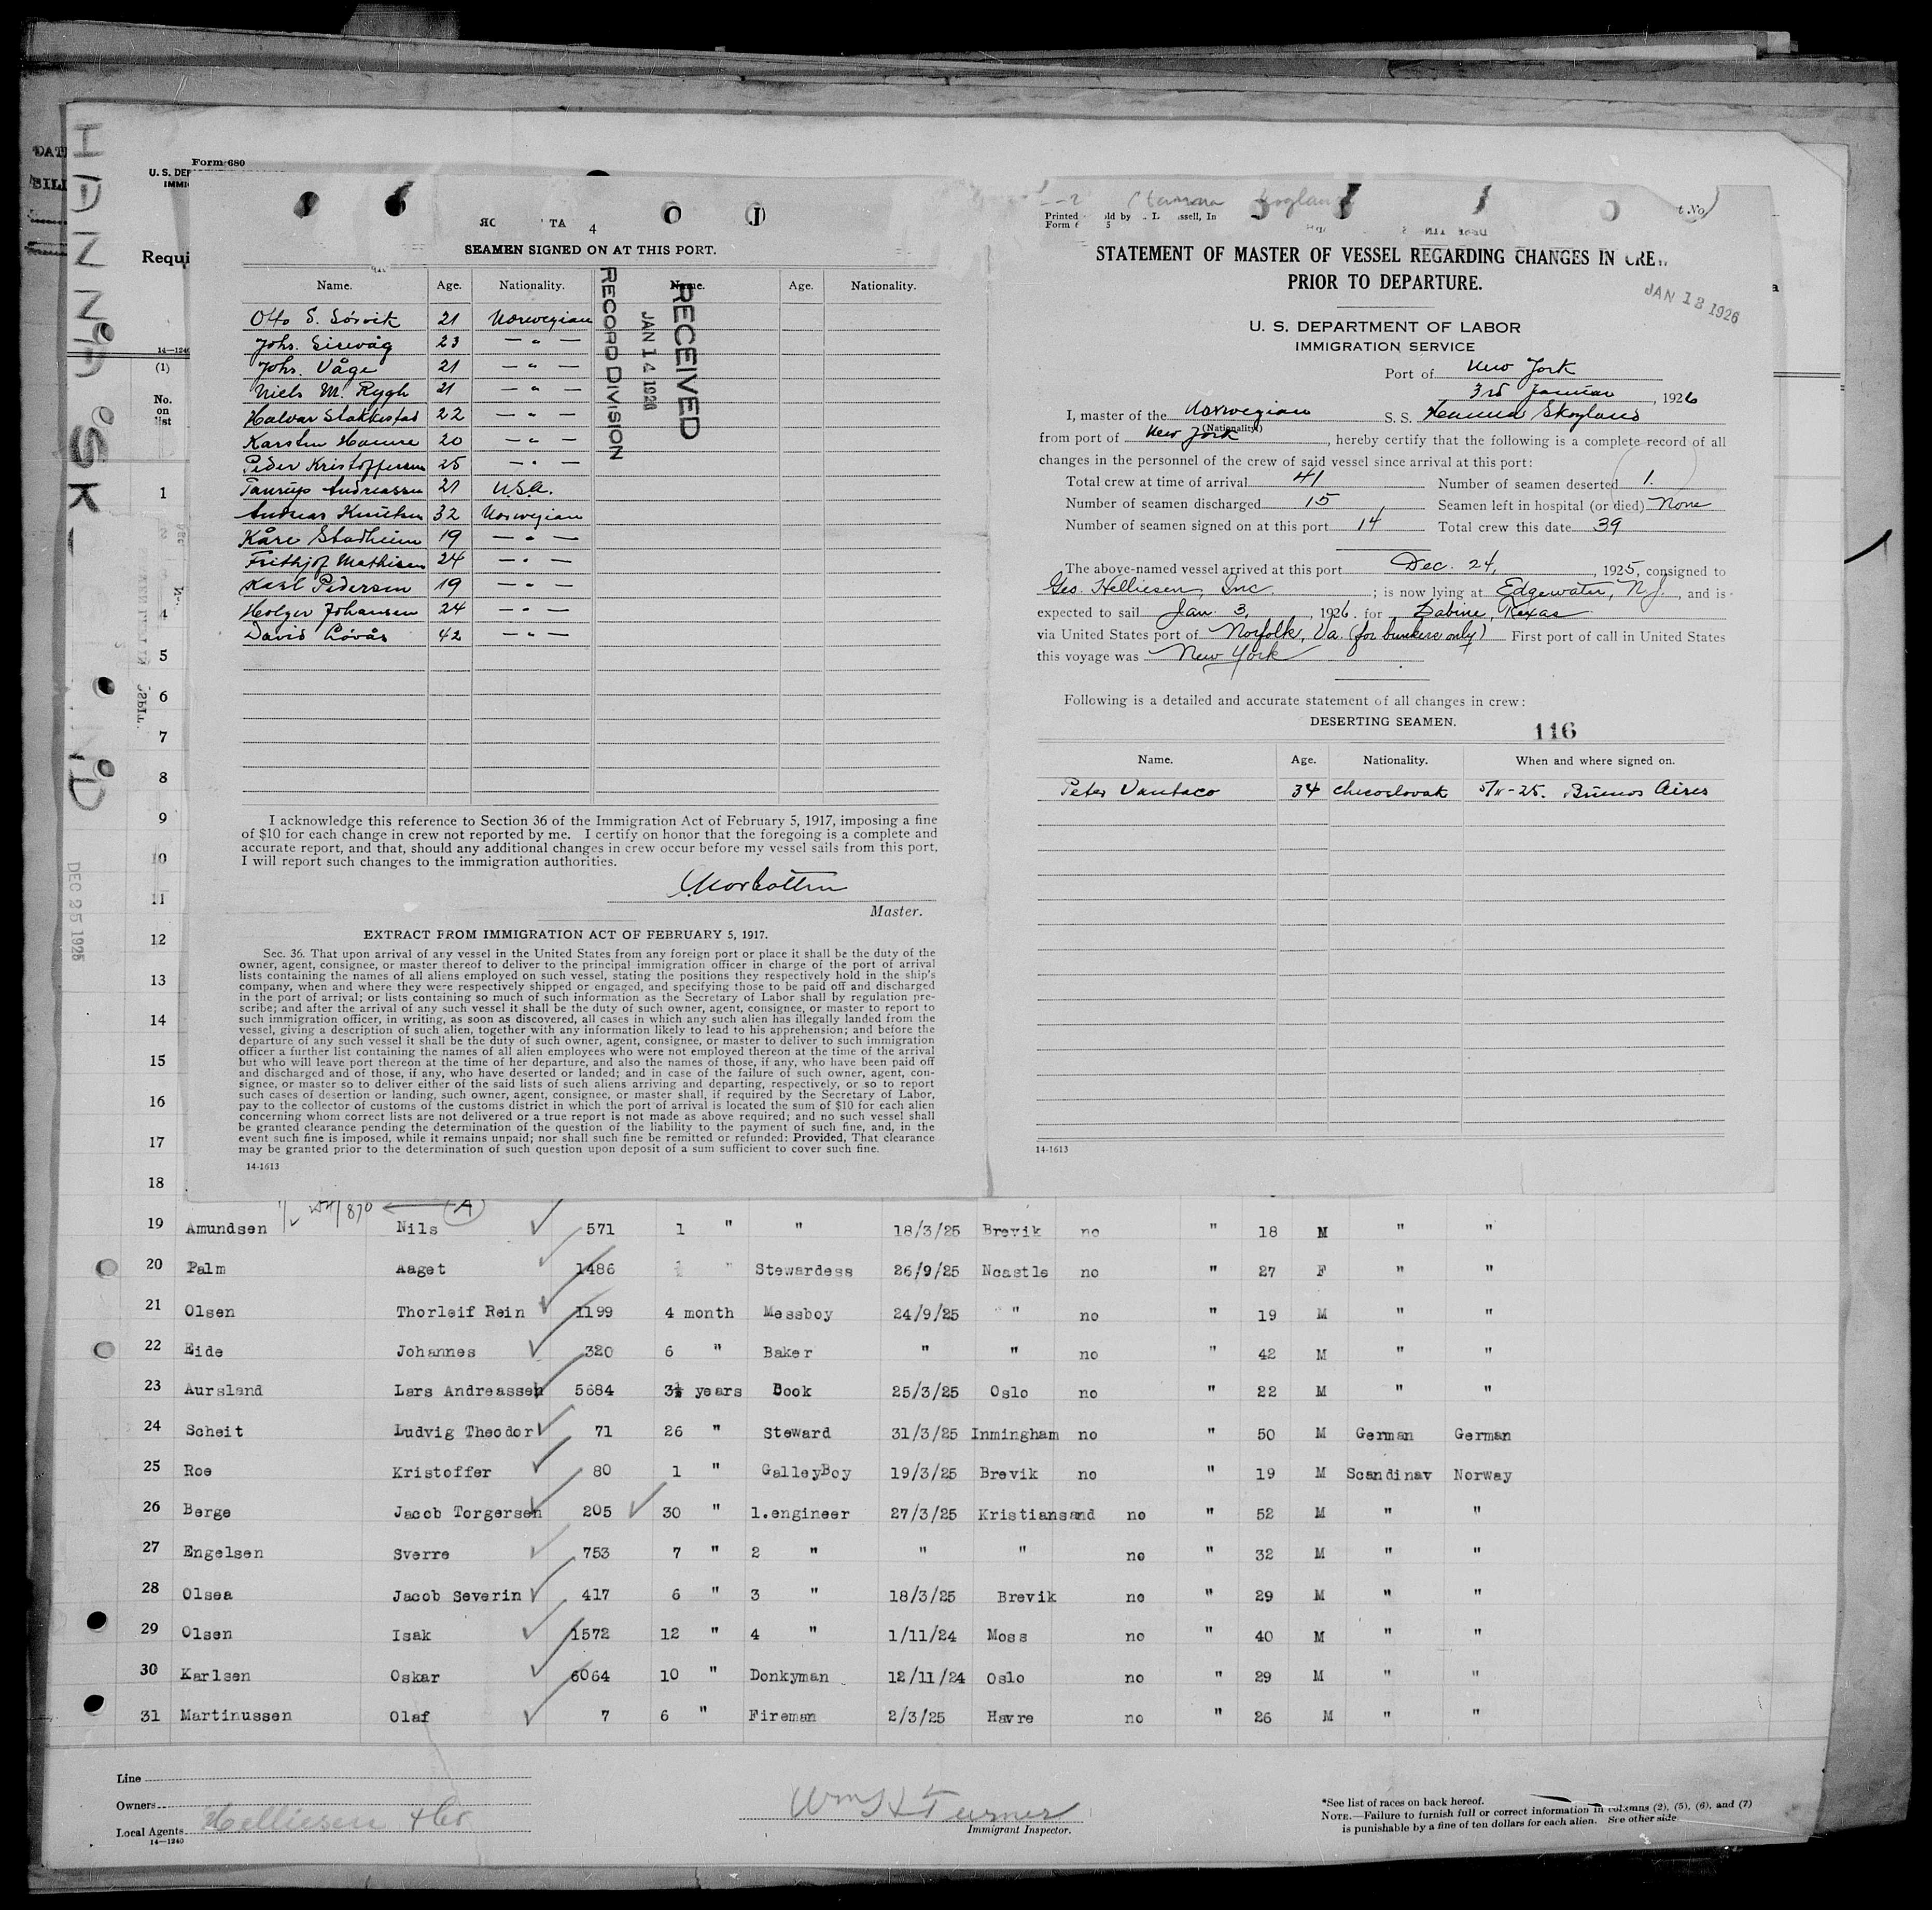 Form 680
U. S. DEP
IMMI
Requi
DAT
BILL
14—1240
(1)
No.
on
list
1
4
5
6
7
8
9
10
11
12
13
14
15
16
17
18
DEC 25 1925
SEAMEN SIGNED ON AT THIS PORT.
Name. Age. Nationality. Name. Age. Nationality.
Otto S. Sörvik 21 Norwegian
Johs. Sirevåg 23 — " —
Johs. Våge 21 — " —
Niels M. Rygh 21 — " —
Halvar Stakkestad 22 — " —
Karsten Hamre 20 — " —
Peder Kristoffersen 25 — " —
Andreassen 21 U.S.A.
Andreas Knutsen 32 Norwegian
Kåre Stadheim 19 — " —
Frithjof Mathisen 24 — " —
Karl Pedersen 19 — " —
Holger Johansen 24 — " —
David 42 — " —
RECEIVED
JAN 14 1926
RECORD DIVISION
I acknowledge this reference to Section 36 of the Immigration Act of February 5, 1917, imposing a fine
of $10 for each change in crew not reported by me. I certify on honor that the foregoing is a complete and
accurate report, and that, should any additional changes in crew occur before my vessel sails from this port,
I will report such changes to the immigration authorities.
Master.
EXTRACT FROM IMMIGRATION ACT OF FEBRUARY 5, 1917.
Sec. 36. That upon arrival of any vessel in the United States from any foreign port or place it shall be the duty of the
owner, agent, consignee, or master thereof to deliver to the principal immigration officer in charge of the port of arrival
lists containing the names of all aliens employed on such vessel, stating the positions they respectively hold in the ship's
company, when and where they were respectively shipped or engaged, and specifying those to be paid off and discharged
in the port of arrival; or lists containing so much of such information as the Secretary of Labor shall by regulation pre-
scribe; and after the arrival of any such vessel it shall be the duty of such owner, agent, consignee, or master to report to
such immigration officer, in writing, as soon as discovered, all cases in which any such alien has illegally landed from the
vessel, giving a description of such alien, together with any information likely to lead to his apprehension; and before the
departure of any such vessel it shall be the duty of such owner, agent, consignee, or master to deliver to such immigration
officer a further list containing the names of all alien employees who were not employed thereon at the time of the arrival
but who will leave port thereon at the time of her departure, and also the names of those, if any, who have been paid off
and discharged and of those, if any, who have deserted or landed; and in case of the failure of such owner, agent, con-
signee, or master so to deliver either of the said lists of such aliens arriving and departing, respectively, or so to report
such cases of desertion or landing, such owner, agent, consignee, or master shall, if required by the Secretary of Labor,
pay to the collector of customs of the customs district in which the port of arrival is located the sum of $10 for each alien
concerning whom correct lists are not delivered or a true report is not made as above required; and no such vessel shall
be granted clearance pending the determination of the question of the liability to the payment of such fine, and, in the
event such fine is imposed, while it remains unpaid; nor shall such fine be remitted or refunded: Provided, That clearance
may be granted prior to the determination of such question upon deposit of a sum sufficient to cover such fine.
14-1613
Printed
Form 6
STATEMENT OF MASTER OF VESSEL REGARDING CHANGES IN CREW
PRIOR TO DEPARTURE.
JAN 13 1926
U. S. DEPARTMENT OF LABOR
IMMIGRATION SERVICE
Port of New York
3rd Januar, 1926
I, master of the Norwegian S. S. Hanna Skogland
(Nationality)
from port of New York, hereby certify that the following is a complete record of all
changes in the personnel of the crew of said vessel since arrival at this port:
Total crew at time of arrival 41 Number of seamen deserted 1.
Number of seamen discharged 15 Seamen left in hospital (or died) None
Number of seamen signed on at this port 14 Total crew this date 39
The above-named vessel arrived at this port Dec. 24, 1925, consigned to
Geo. Helliesen, Inc. ; is now lying at Edgewater, N.J., and is
expected to sail Jan. 3, 1926. for Sabine, Texas
via United States port of Norfolk, Va. (for bunkers only) First port of call in United States
this voyage was New York
Following is a detailed and accurate statement of all changes in crew:
DESERTING SEAMEN.
116
Name. Age. Nationality. When and where signed on.
Peter Vantaco 34 Checoslovak 5/11-25. Buenos Aires
14-1613
19 Amundsen Nils 571 1 " " 18/3/25 Brevik no " 18 M " "
20 Palm Aaget 1486 ½ " Stewardess 26/9/25 Ncastle no " 27 F " "
21 Olsen Thorleif Rein 1199 4 month Messboy 24/9/25 " no " 19 M " "
22 Eide Johannes 320 6 " Baker " " no " 42 M " "
23 Aursland Lars Andreassen 5684 3½ years Dook 25/3/25 Oslo no " 22 M " "
24 Scheit Ludvig Theodor 71 26 " Steward 31/3/25 Inmingham no " 50 M German German
25 Roe Kristoffer 80 1 " GalleyBoy 19/3/25 Brevik no " 19 M Scandinav Norway
26 Berge Jacob Torgersen 205 30 " 1.engineer 27/3/25 Kristiansand no " 52 M " "
27 Engelsen Sverre 753 7 " 2 " " " no " 32 M " "
28 Olsea Jacob Severin 417 6 " 3 " 18/3/25 Brevik no " 29 M " "
29 Olsen Isak 1572 12 " 4 " 1/11/24 Moss no " 40 M " "
30 Karlsen Oskar 6064 10 " Donkyman 12/11/24 Oslo no " 29 M " "
31 Martinussen Olaf 7 6 " Fireman 2/3/25 Havre no " 26 M " "
Line
Owners
Local Agents Helliesen & Co
14—1240
Wm H Turner
Immigrant Inspector.
*See list of races on back hereof.
NOTE.—Failure to furnish full or correct information in columns (2), (5), (6), and (7)
is punishable by a fine of ten dollars for each alien. See other side